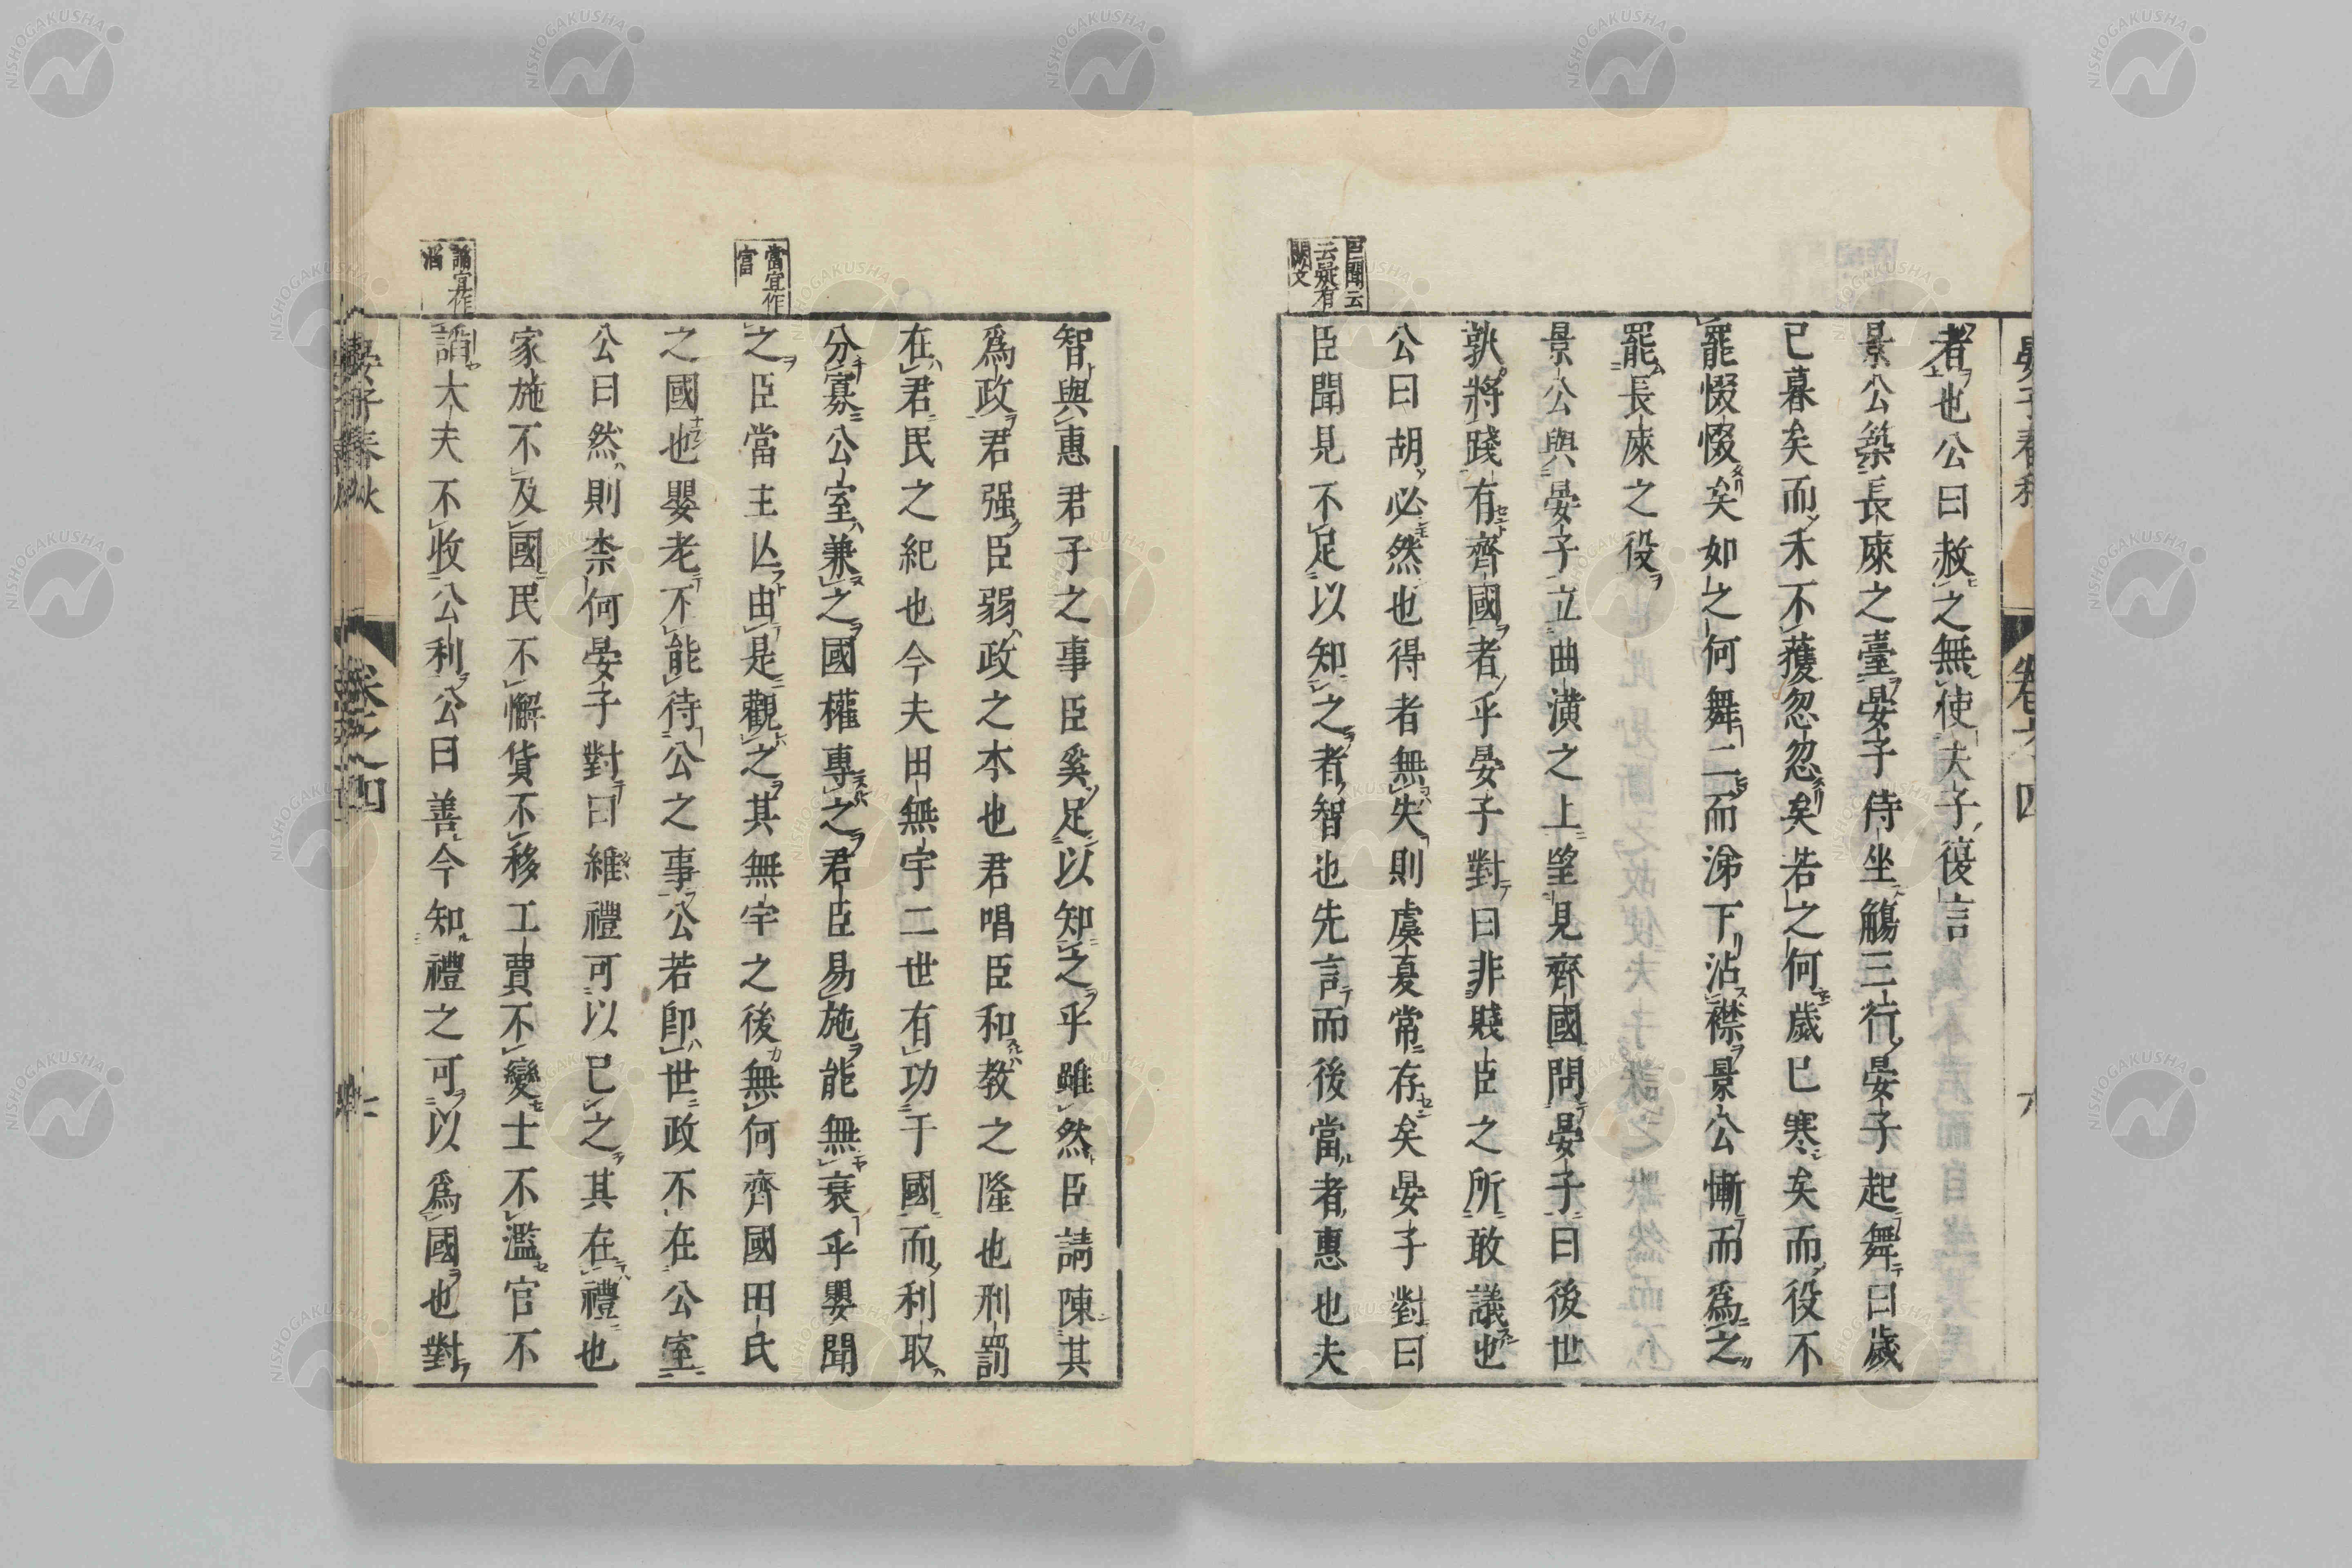 晏子春秋 卷之四
者也公曰赦之無使夫子復言
景公築長庲之臺晏子侍坐觴三行晏子起舞曰歲
已暮矣而禾不獲忽忽矣若之何歲已寒矣而役不
罷惙惙矣如之何舞二而涕下沾襟景公慚而爲之
罷長庲之役
景公與晏子立曲潢之上望見齊國問晏子曰後世
孰將踐有齊國者乎晏子對曰非賤臣之所敢議也
公曰胡必然也得者無失則虞夏常存矣晏子對曰
臣聞見不足以知之者智也先言而後當者惠也夫
已聞云
云疑有
闕文
智與惠君子之事臣奚足以知之乎雖然臣請陳其
爲政君强臣弱政之本也君唱臣和教之隆也刑罰
在君民之紀也今夫田無宇二世有功于國而利取
分寡公室兼之國權專之君臣易施能無衰乎嬰聞
之臣當主亾由是觀之其無宇之後無何齊國田氏
之國也嬰老不能待公之事公若卽世政不在公室
公曰然則柰何晏子對曰維禮可以已之其在禮也
家施不及國民不懈貨不移工賈不變士不濫官不
謟大夫不收公利公曰善今知禮之可以爲國也對
當宜作
富
謟宜作
滔
晏子春秋
卷之四